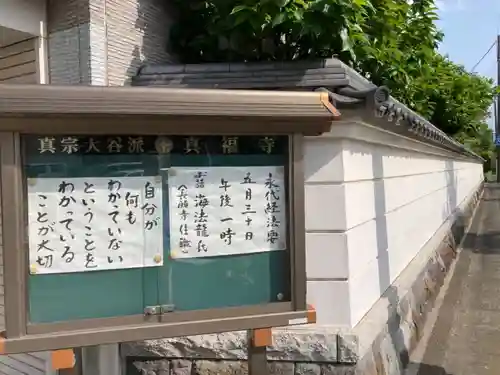 真宗大谷派 真福寺
自分が
何も
わかっていない
ということを
わかっている
ことが大切
永代経法要
五月三十日
午後一時
法話 海法龍氏